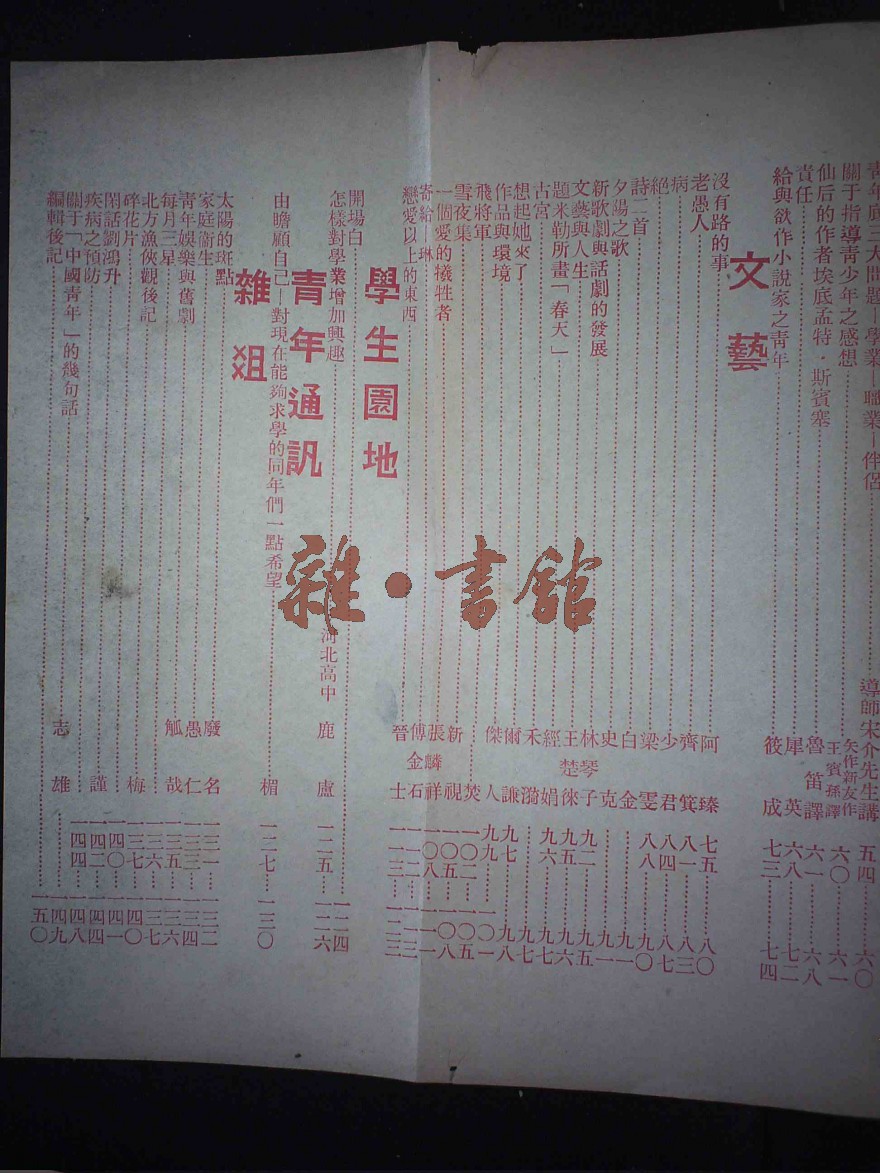 青年底三大問題—學業—職業—伴侶 導師宋介先生講 五四 六〇
關于指導靑少年之感想 矢作新友作 王賓孫譯 六〇 六一
仙后的作者埃底孟特·斯賓塞 魯笛譯 六一 六八
責任 犀英 六八 七二
給與欲作小說家之靑年 筱成 七三 七四
文藝
沒有路的事 阿臻 七五 八〇
老愚人 齊箕 八一 八三
病 少君 八四 八八
絕 梁雯 八八 九〇
詩二首 白金 九一
夕陽之歌 史克 九一
新歌劇與話劇的發展 林琴子 九二 九五
文藝與人生 王楚徠 九五 九六
題米勒所畫「春天」 經娟 九六 九七
古宮 禾漪 九七
想起她來了 爾謙 九七 九八
作品與環境 傑人
飛將軍
雪夜集
一個愛的犧牲者
寄給—琳
戀愛以上的東西 晉士
學生園地
開場白 一二四
怎樣對學業增加興趣 河北高中 鹿盧 一二五 一二六
青年通訊
由瞻顧自己—對現在能夠求學的同年們一點希望 楣 一二七 一三〇
雜俎
太陽的斑點 廢名 一三一 一三二
家庭衞生 愚仁 一三三 一三四
靑年娛樂與舊劇 觚哉 一三五 一三六
每月三星 一三六 一三七
北方漁俠觀後記 梅 一三七 一四〇
碎花片 一四〇 一四一
閑話劉鴻升 謹 一四二 一四四
疾病之預防 一四四 一四八
關于「中國靑年」的幾句話 志雄 一四九
編輯後記 一五〇
雜·書館